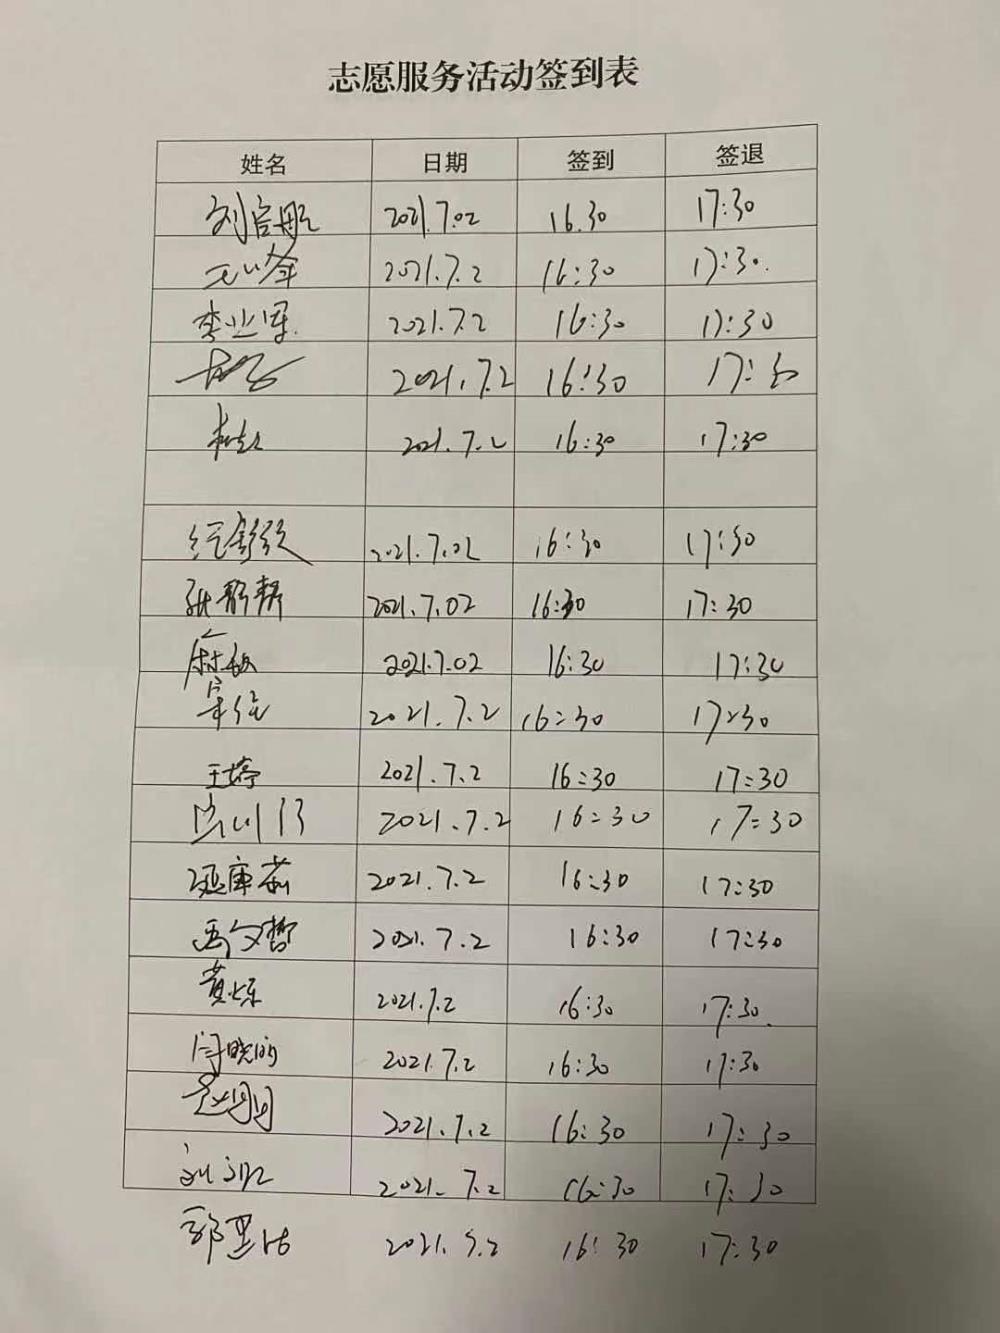 志愿服务活动签到表
姓名 日期 签到 签退
刘启航 2021.7.02 16.30 17:30
2021.7.2 16:30 17:30.
李业军 2021.7.2 16:30 17:30
2021.7.2 16:30 17:30
2021.7.2 16:30 17:30
2021.7.02 16:30 17:30
张静静 2021.7.02 16:30 17:30
2021.7.02 16:30 17:30
2021.7.2 16:30 17:30
王婷 2021.7.2 16:30 17:30
2021.7.2 16:30 17:30
2021.7.2 16:30 17:30
2021.7.2 16:30 17:30
黄烁 2021.7.2 16:30 17:30.
闫晓明 2021.7.2 16:30 17:30
2021.7.2 16:30 17:30
2021.7.2 16:30 17:30
2021. 16:30 17:30